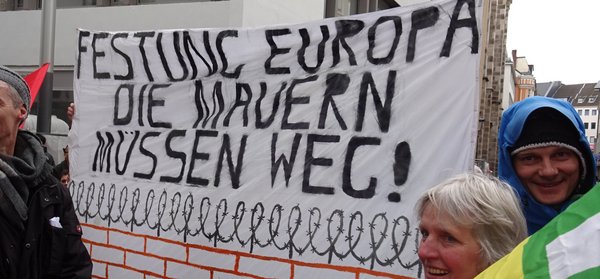 FESTUNG EUROPA
DIE MAUERN
MÜSSEN WEG!